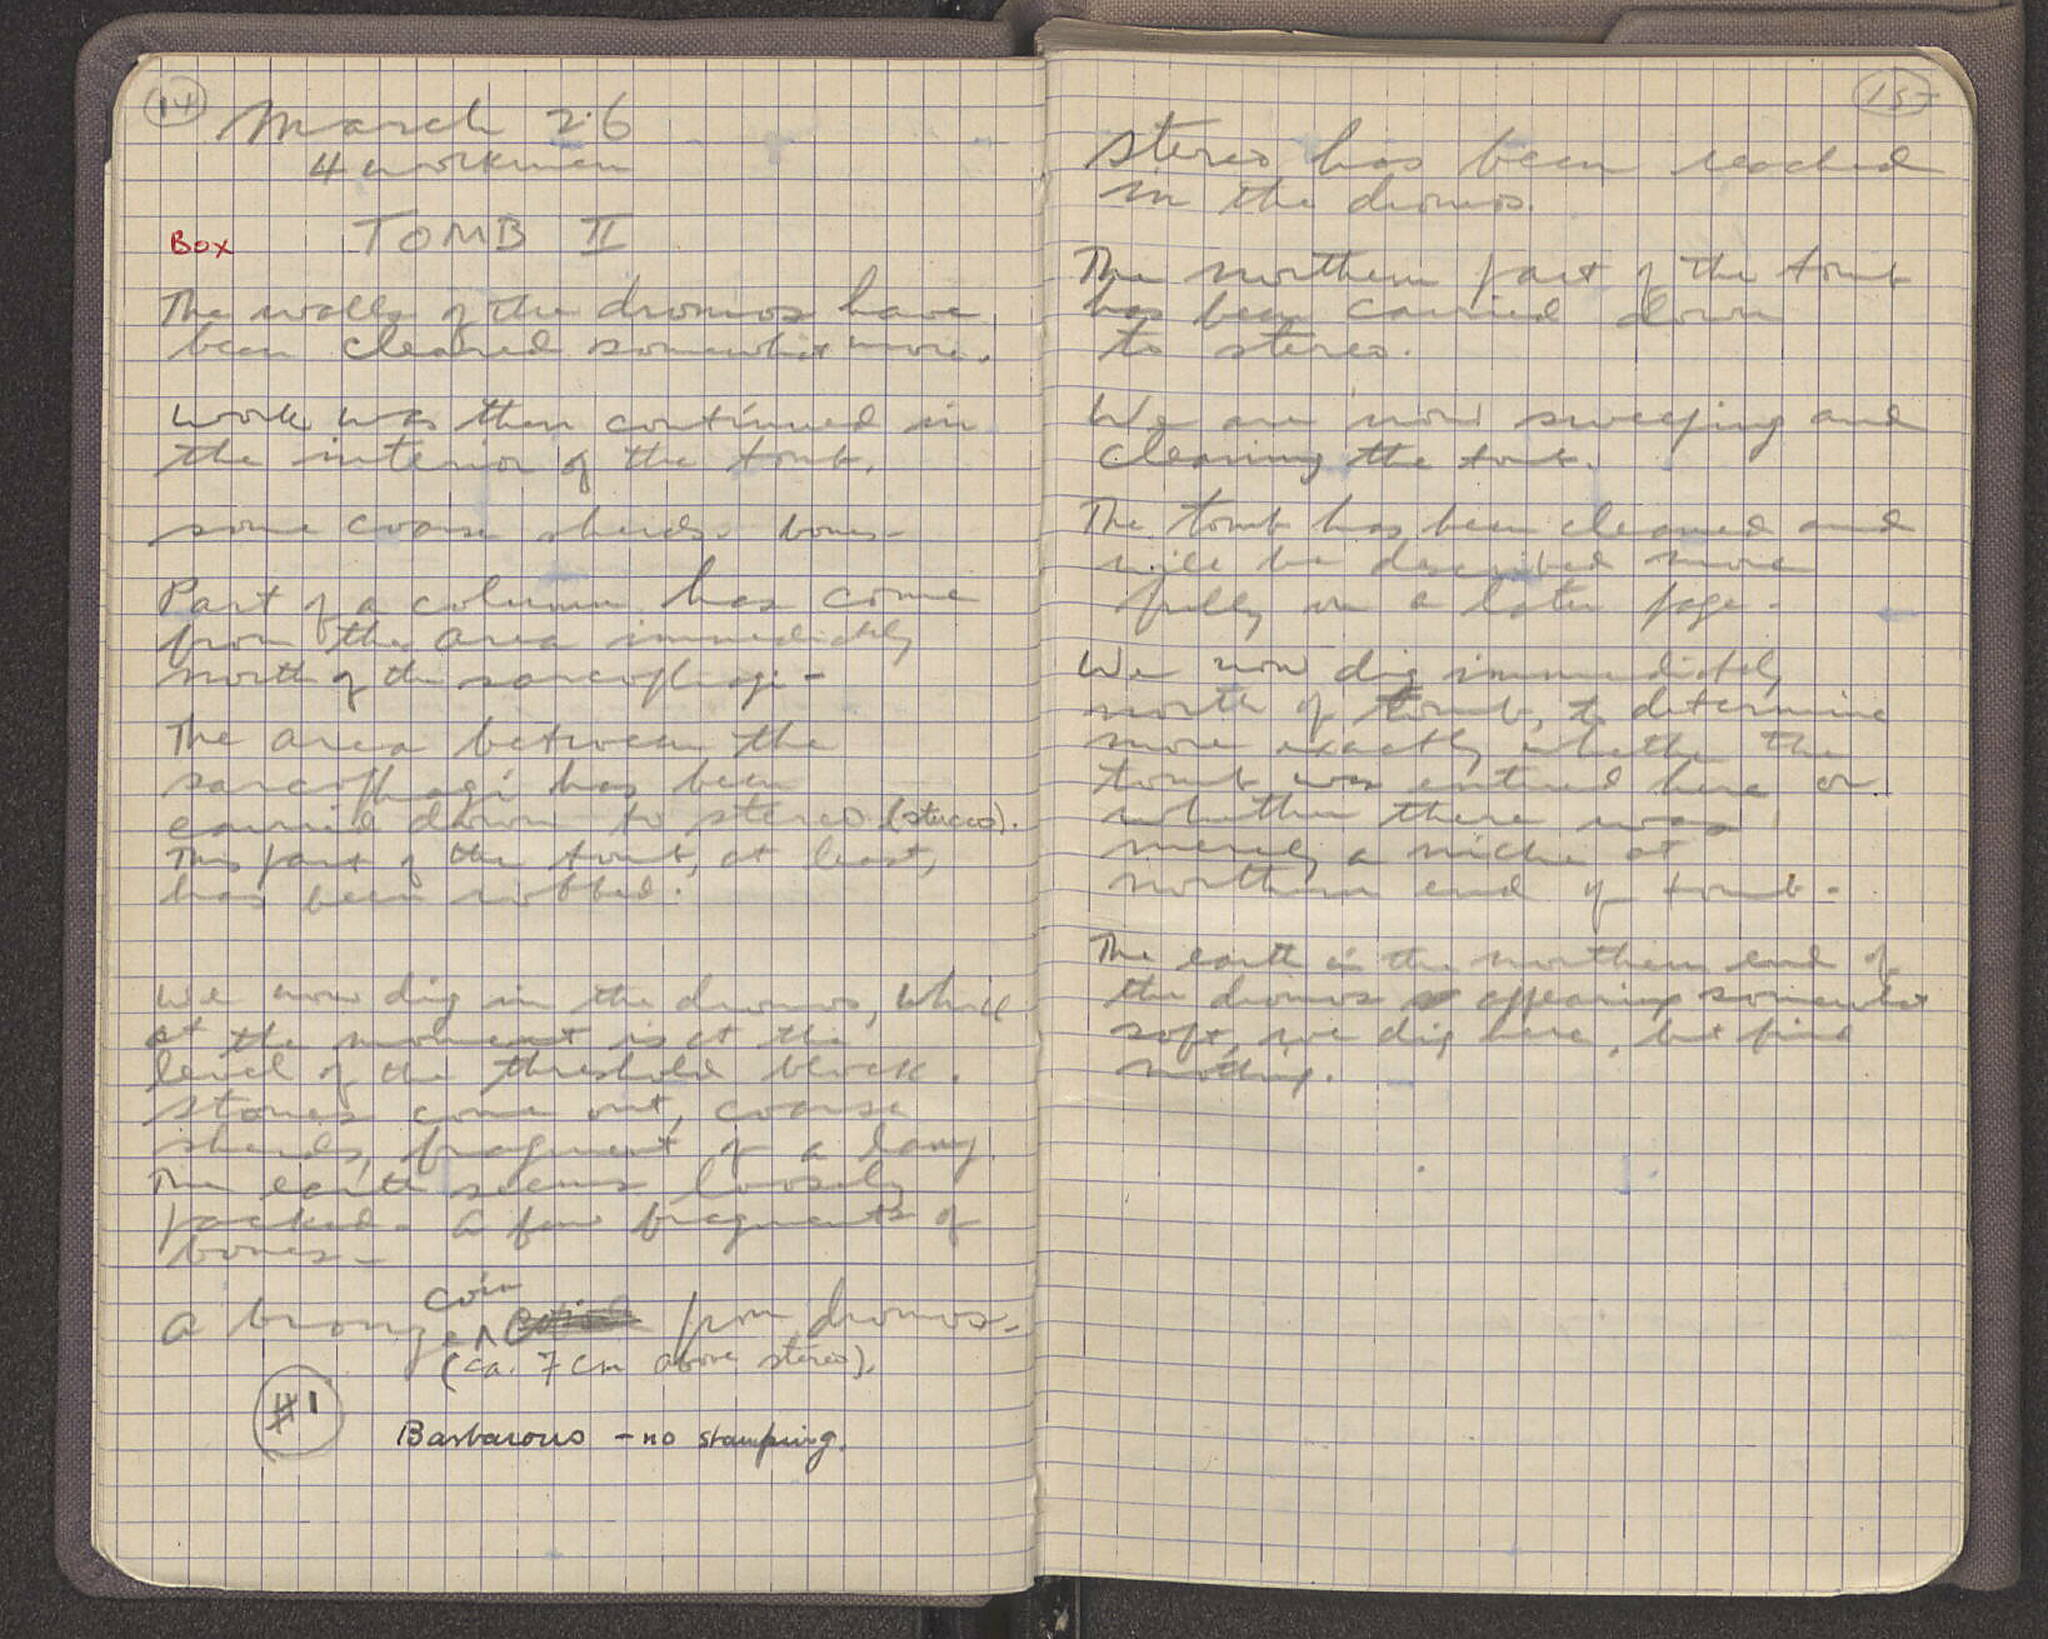 14
March 26
4 workmen
Box TOMB II
The walls of the dromos have
been cleared somewhat more.
Work was then continued in
the interior of the tomb.
some coarse sherds bones -
Part of a column has come
from the area immediately
north of the sarcophagi -
The area between the
sarcophagi has been
carried down to stereo (stereo).
This part of the tomb, at least,
has been robbed.
We now dig in the dromos, which
at the moment is at the
level of the threshold block.
Stones come out, coarse
sherds, fragment of a lamp.
The earth seems loosely
packed - a few fragments of
bones -
coin
A bronze ^ from dromos -
(ca. 7 cm above stereo).
#1
Barbarous - no stamping.
15
stereo has been reached
in the dromos.
The northern part of the tomb
has been carried down
to stereo.
We are now sweeping and
cleaning the tomb.
The tomb has been cleaned and
will be described more
fully on a later page -
We now dig immediately
north of tomb, to determine
more exactly whether the
tomb was entered here or
whether there was
merely a niche at
northern end of tomb -
The earth in the northern end of
the dromos appearing somewhat
soft, we dig here, but find
nothing.